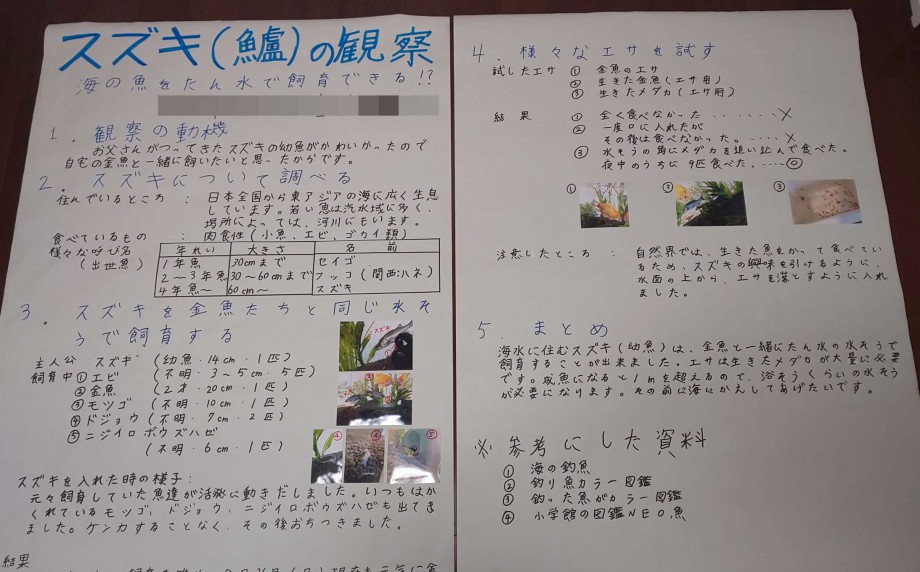 スズキ(鱸)の観察
海の魚をたん水で飼育できる!?
1. 観察の動機
お父さんがつってきたスズキの幼魚がかわいかったので
自宅の金魚と一緒に飼いたいと思ったからです。
2. スズキについて調べる
住んでいるところ : 日本全国から東アジアの海に広く生息
しています。若い魚は汽水域に多く、
場所によっては、河川にもいます。
食べているもの : 肉食性(小魚、エビ、ゴカイ類)
様々な呼び名
(出世魚)
年れい 大きさ 名前
1年魚 30cmまで セイゴ
2〜3年魚 30〜60cmまで フッコ(関西:ハネ)
4年魚〜 60cm〜 スズキ
3. スズキを金魚たちと同じ水そ
うで飼育する
主人公 スズキ (幼魚・14cm・1匹)
飼育中 ①エビ (不明・3〜5cm・5匹)
②金魚 (2才・20cm・1匹)
③モツゴ (不明・10cm・1匹)
④ドジョウ (不明・7cm・2匹)
⑤ニジイロボウズハゼ
(不明・6cm・1匹)
スズキ
①
②
③
④
④
⑤
スズキを入れた時の様子:
元々飼育していた魚達が活発に動きだしました。いつもはか
くれているモツゴ、ドジョウ、ニジイロボウズハゼも出てき
ました。ケンカすることなく、その後おちつきました。
結果
4. 様々なエサを試す
試したエサ ① 金魚のエサ
② 生きた金魚(エサ用)
③ 生きたメダカ(エサ用)
結果 ① 全く食べなかった.......×
② 一度口に入れたが
その後は食べなかった。....×
③ 水そうの角にメダカを追い込んで食べた。
夜中のうちに9匹食べた.....◎
① ② ③
注意したところ : 自然界では、生きた魚をかって食べてい
るため、スズキの興味を引けるように、
水面の上から、エサを落とすように入れ
ました。
5. まとめ
海水に住むスズキ(幼魚)は、金魚と一緒にたん水の水そうで
飼育することが出来ました。エサは生きたメダカが大量に必要
です。成魚になると1mを超えるので、浴そうくらいの水そう
が必要になります。その前に海にかえしてあげたいです。
※参考にした資料
① 海の釣魚
② 釣り魚カラー図鑑
③ 釣った魚がカラー図鑑
④ 小学館の図鑑NEO.魚